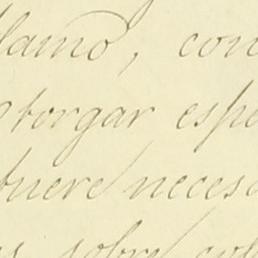 llamo, con
otorgar espe
tuere necesa
sobre